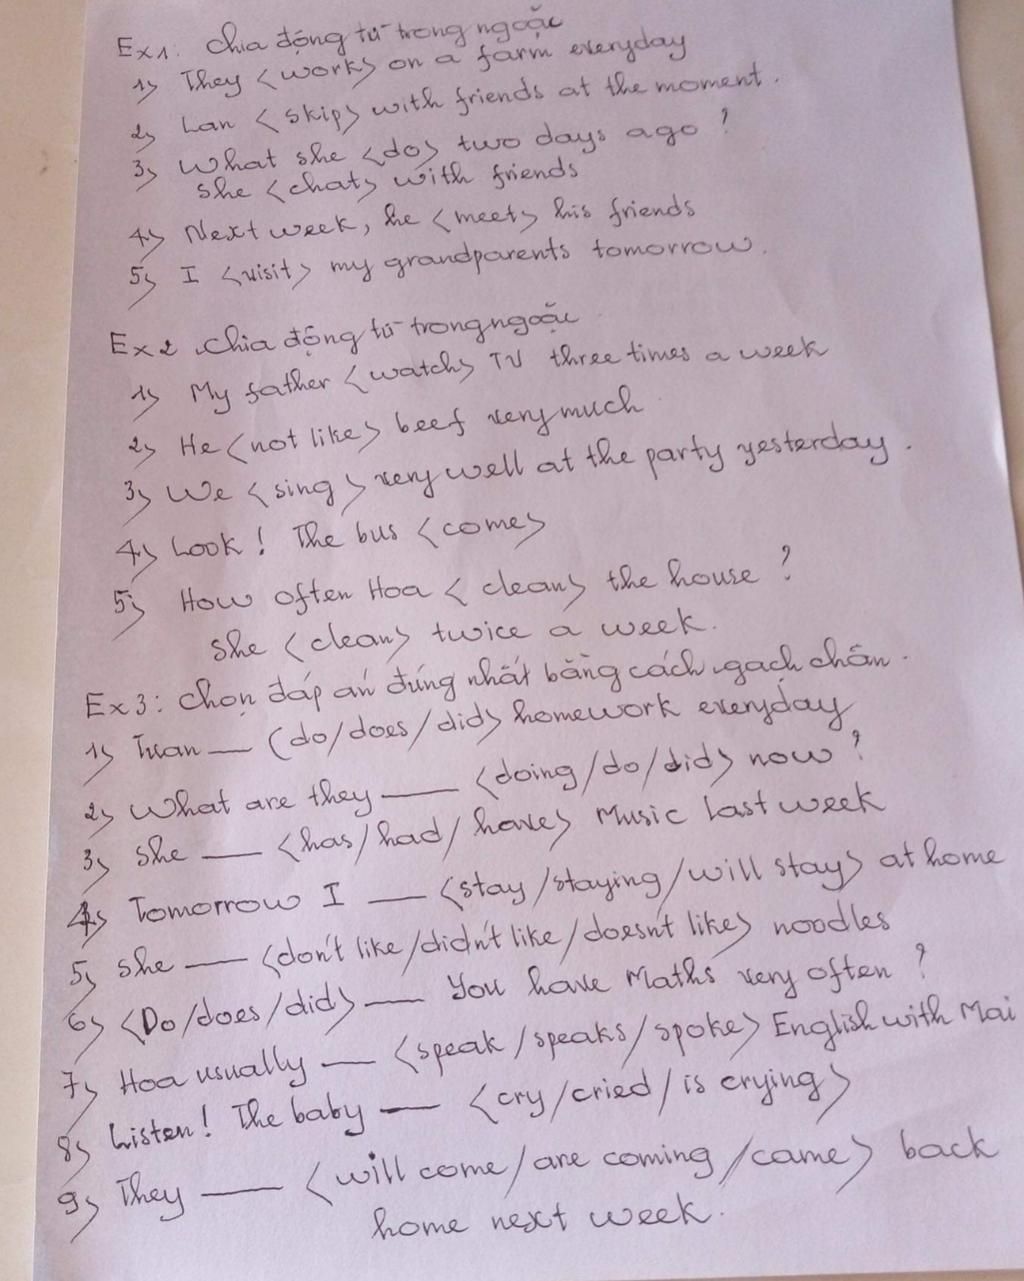 Ex1: Chia động từ trong ngoặc
1) They (work) on a farm everyday
2) Lan (skip) with friends at the moment.
3) What she (do) two days ago?
She (chat) with friends
4) Next week, he (meet) his friends
5) I (visit) my grandparents tomorrow.
Ex2. Chia động từ trong ngoặc
1) My father (watch) TV three times a week
2) He (not like) beef very much
3) We (sing) very well at the party yesterday.
4) Look! The bus (come)
5) How often Hoa (clean) the house?
She (clean) twice a week.
Ex3: Chọn đáp án đúng nhất bằng cách gạch chân.
1) Tuan — (do/does/did) homework everyday
2) What are they — (doing/do/did) now?
3) She — (has/had/have) Music last week
4) Tomorrow I — (stay/staying/will stay) at home
5) She — (don't like/didn't like/doesn't like) noodles
6) (Do/does/did) — You have Maths very often?
7) Hoa usually — (speak/speaks/spoke) English with Mai
8) Listen! The baby — (cry/cried/is crying)
9) They — (will come/are coming/came) back
home next week.